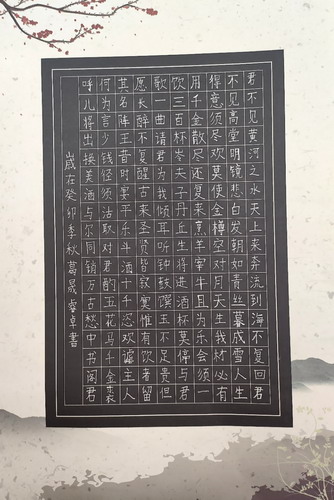 君不见黄河之水天上来奔流到海不复回君
不见高堂明镜悲白发朝如青丝暮成雪人生
得意须尽欢莫使金樽空对月天生我材必有
用千金散尽还复来烹羊宰牛且为乐会须一
饮三百杯岑夫子丹丘生将进酒杯莫停与君
歌一曲请君为我倾耳听钟鼓馔玉不足贵但
愿长醉不复醒古来圣贤皆寂寞惟有饮者留
其名陈王昔时宴平乐斗酒十千恣欢谑主人
何为言少钱径须沽取对君酌五花马千金裘
呼儿将出换美酒与尔同销万古愁中书阁君
歲在癸卯季秋葛晟睿卓書